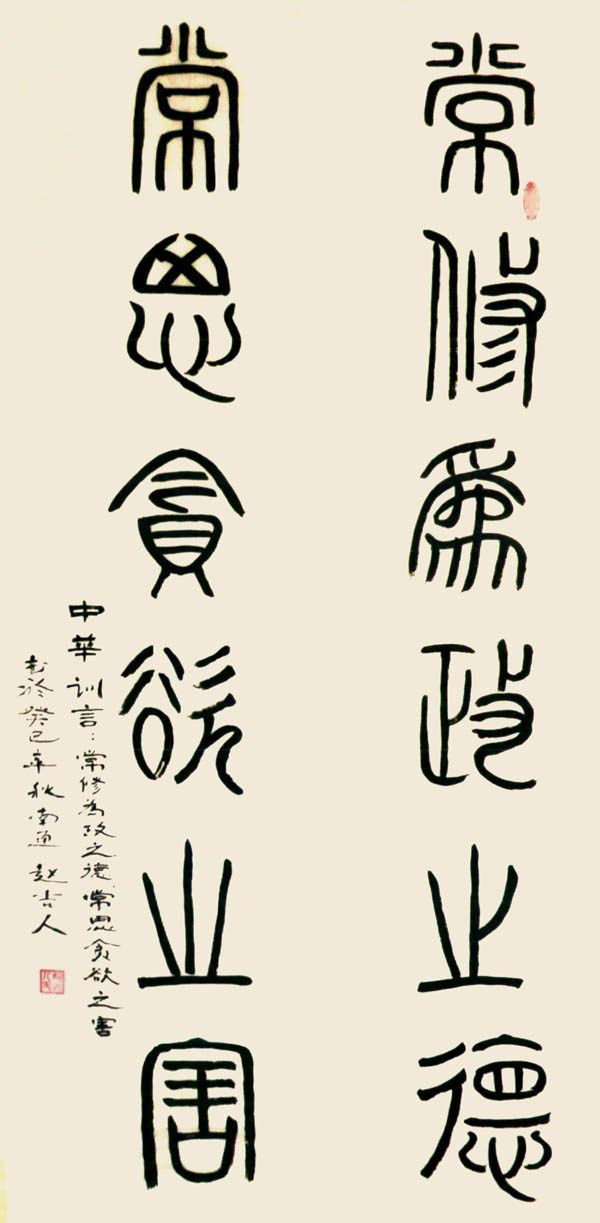 常修為政之德
常思貪欲之害
中華訓言：常修為政之德常思貪欲之害
書於癸巳年秋南通趙吉人